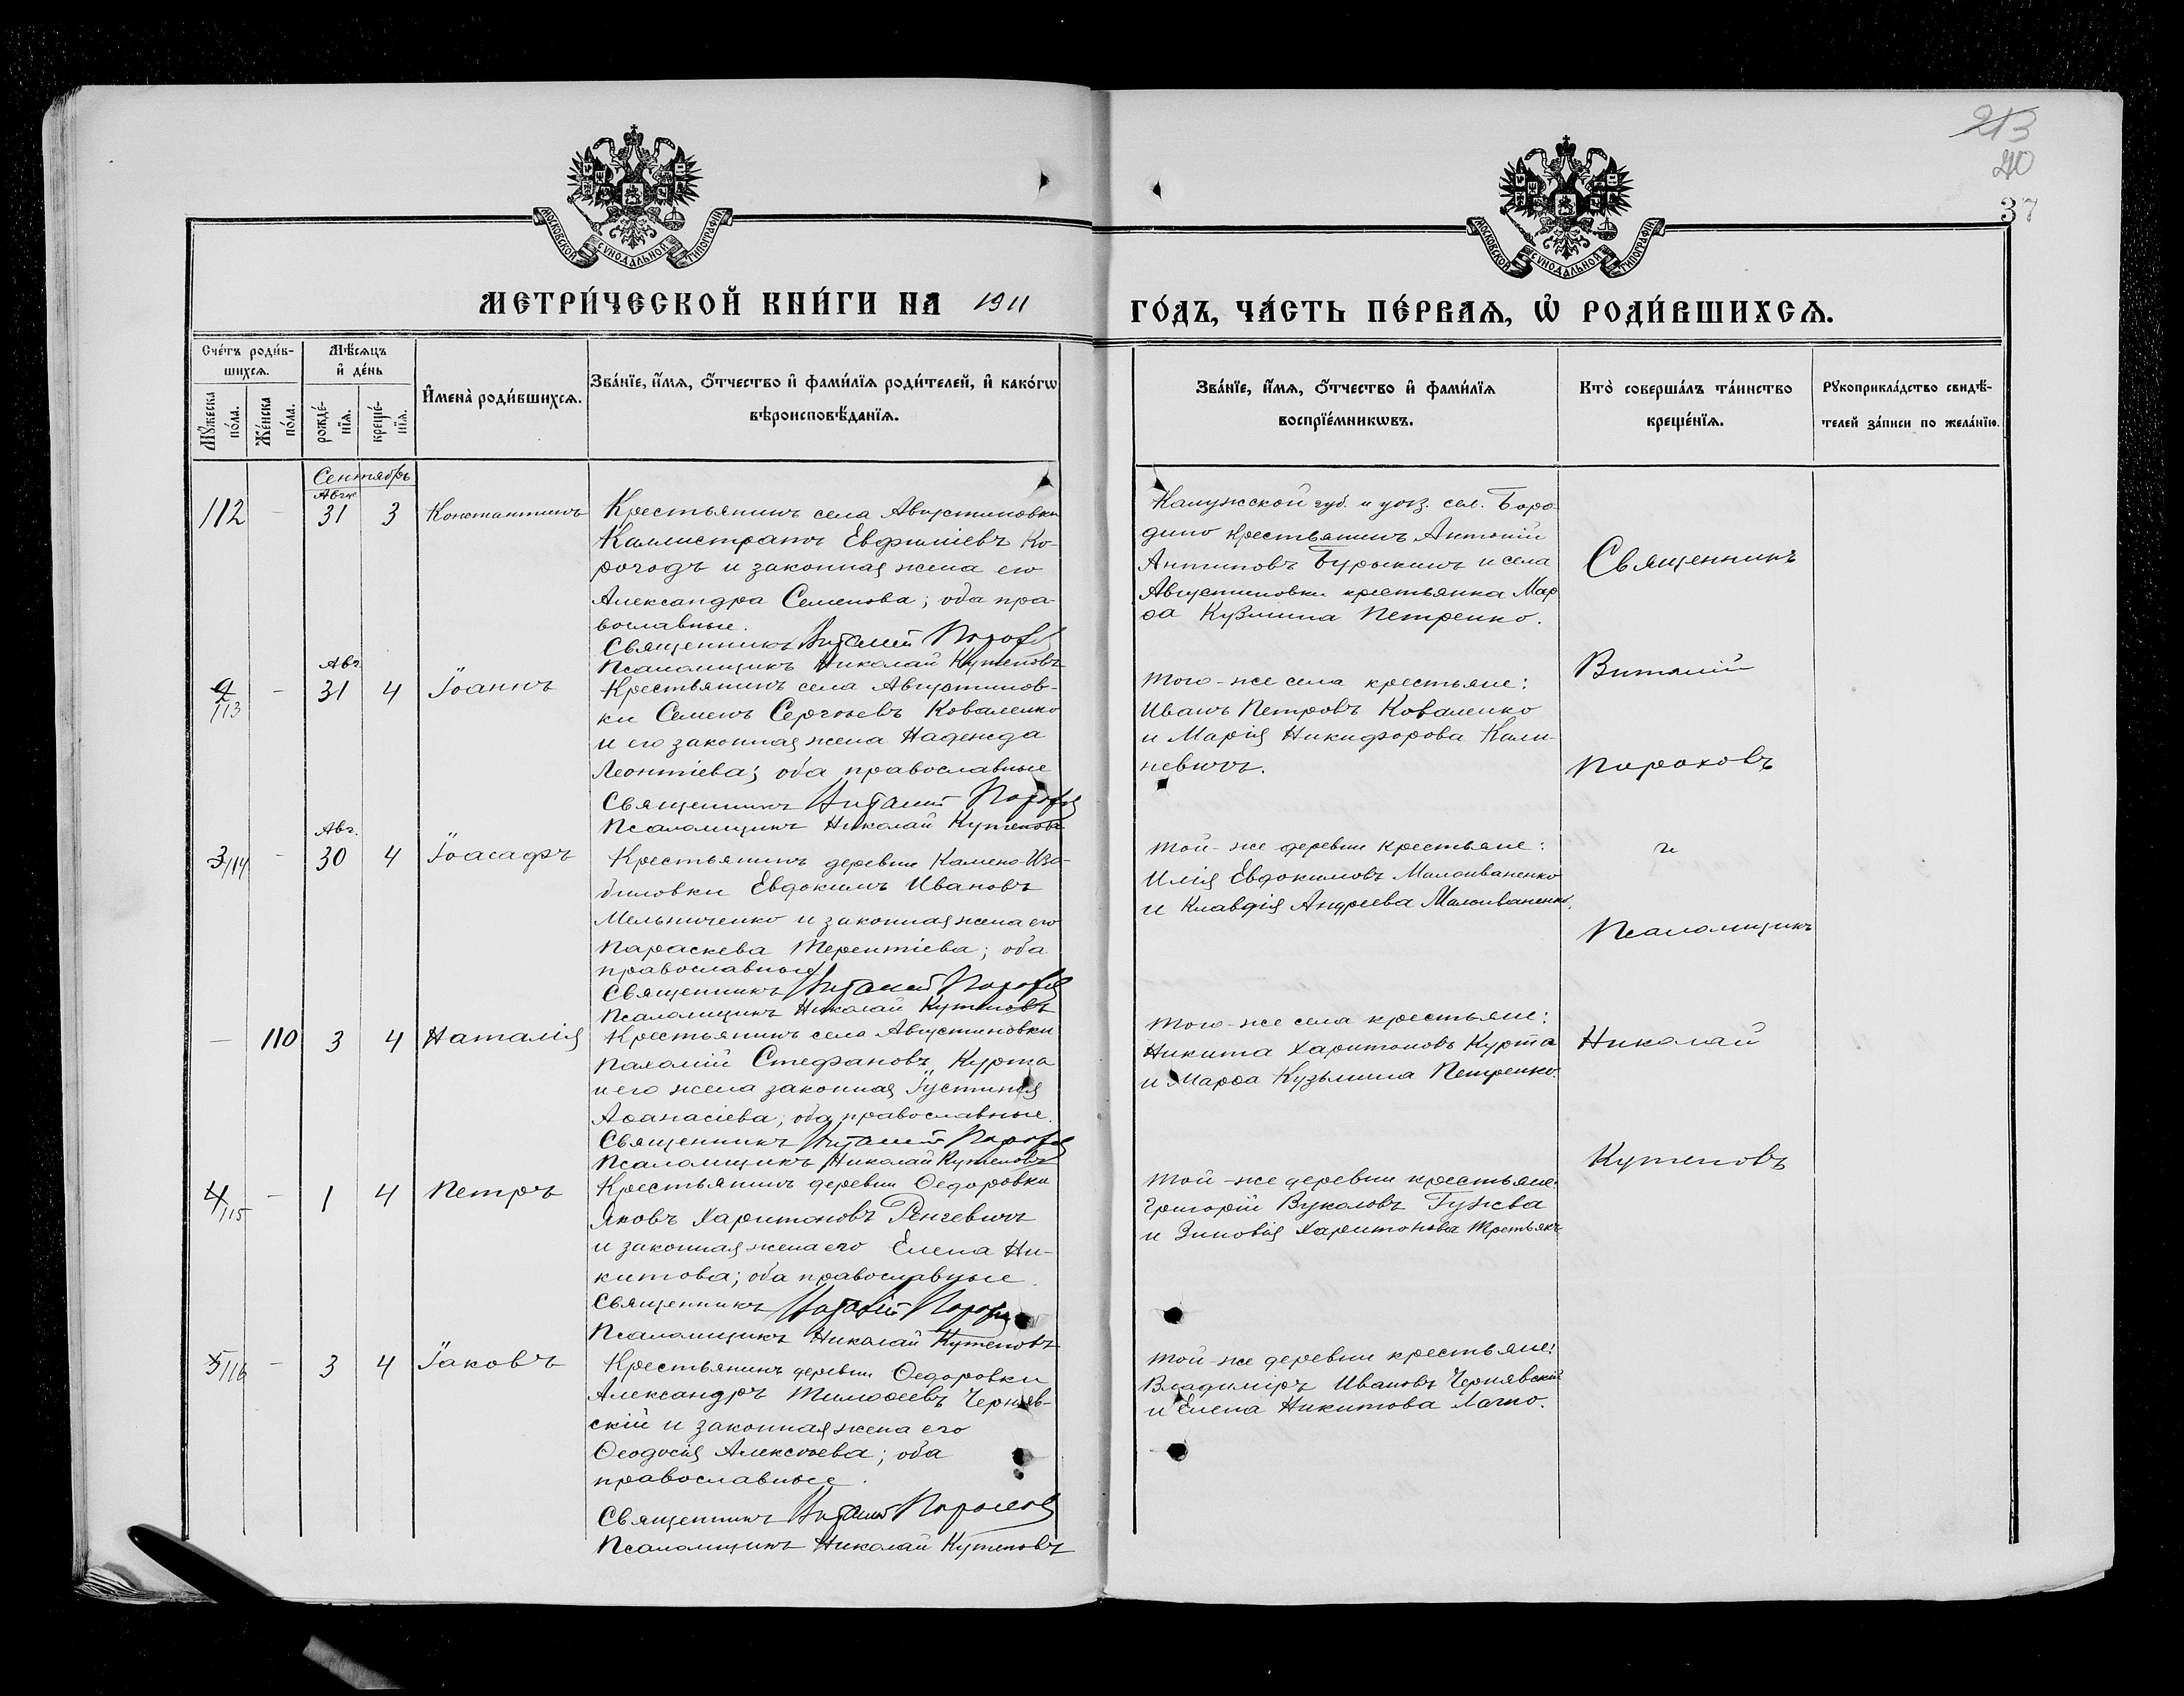 213
40
37
МОСКОВСКОЙ СѴНОДАЛЬНОЙ ТИПОГРАФІИ.
МОСКОВСКОЙ СѴНОДАЛЬНОЙ ТИПОГРАФІИ.
МЕТРИ́ЧЕСКОЙ КНИ́ГИ НА 1911
ГО́ДЪ, ЧА́СТЬ ПЕ́РВАѦ, Ѡ҆ РОДИ́ВШИХСѦ.
Сче́тъ роди́в-
шихсѧ.
Мꙋ́жеска по́ла.
Же́нска по́ла.
Мѣ́сѧцъ
и҆ де́нь
рожде́-
нїѧ.
креще́-
нїѧ.
И҆мена̀ роди́вшихсѧ.
Зва́нїе, и҆́мѧ, ѻ҆́тчество и҆ фами́лїѧ роди́телей, и҆ како́гѡ
вѣроисповѣ́данїѧ.
Зва́нїе, и҆́мѧ, ѻ҆́тчество и҆ фами́лїѧ
воспрїе́мникѡвъ.
Кто̀ соверша́лъ та́инство
креще́нїѧ.
Рꙋкоприкла́дство свидѣ́-
телей за́писи по жела́нїю.
Сентябрь
Авг.
112 - 31 3 Константинъ
Крестьянинъ села Августиновки
Каллистратъ Евфиміевъ Ко-
рогодъ и законная жена его
Александра Семенова; оба пра-
вославные.
Священникъ Виталій Пороховъ
Псаломщикъ Николай Кутеповъ
Калужской губ. и уѣз. сел. Боро-
дино крестьянинъ Антоній
Антиповъ Бурыкинъ и села
Августиновки крестьянка Мар-
ѳа Кузьмина Петренко.
Авг.
2/113 - 31 4 Іоаннъ
Крестьянинъ села Августинов-
ки Семенъ Сергѣевъ Коваленко
и его законная жена Надежда
Леонтіева; оба православные
Священникъ Виталій Пороховъ
Псаломщикъ Николай Кутеповъ
Того-же села крестьяне:
Иванъ Петровъ Коваленко
и Марія Никифорова Кали-
невичъ.
Авг.
3/114 - 30 4 Іоасафъ
Крестьянинъ деревни Камено-Изо-
биловки Евдокимъ Ивановъ
Мельниченко и законная жена его
Параскева Терентіева; оба
православные
Священникъ Виталій Пороховъ
Псаломщикъ Николай Кутеповъ
Той-же деревни крестьяне:
Илія Евдокимовъ Малоиваненко
и Клавдія Андреева Малоиваненко.
- 110 3 4 Наталія
Крестьянинъ села Августиновки
Пахомій Стефановъ Курта
и его жена законная Іустинія
Аѳанасіева; оба православные.
Священникъ Виталій Пороховъ
Псаломщикъ Николай Кутеповъ
Того-же села крестьяне:
Никита Харитоновъ Курта
и Марѳа Кузьмина Петренко.
4/115 - 1 4 Петръ
Крестьянинъ деревни Ѳедоровки
Яковъ Харитоновъ Ренчевичъ
и законная жена его Елена Ни-
китова; оба православные.
Священникъ Виталій Пороховъ
Псаломщикъ Николай Кутеповъ
Той-же деревни крестьяне:
Григорій Вуколовъ Гужва
и Зиновія Харитонова Третьякъ
5/116 - 3 4 Іаковъ
Крестьянинъ деревни Ѳедоровки
Александръ Тимоѳеевъ Черняв-
скій и законная жена его
Ѳеодосія Алексѣева; оба
православные.
Священникъ Виталій Пороховъ
Псаломщикъ Николай Кутеповъ
Той-же деревни крестьяне:
Владиміръ Ивановъ Чернявскій
и Елена Никитова Лагно.
Священникъ
Виталій
Пороховъ
и
Псаломщикъ
Николай
Кутеповъ